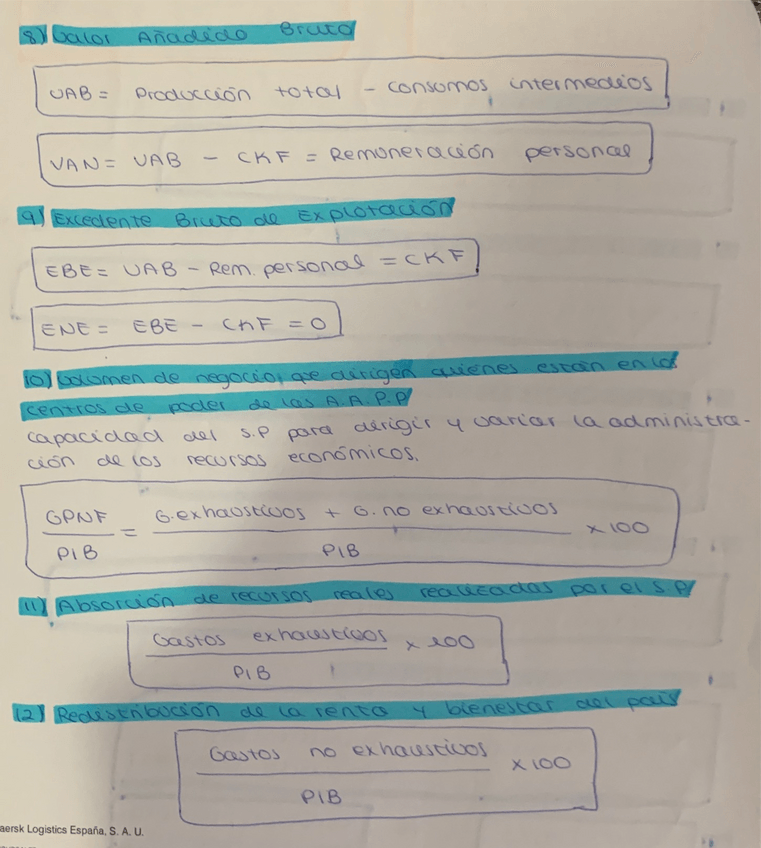 8) Valor Añadido Bruto
VAB = Producción total - consumos intermedios
VAN = VAB - CKF = Remuneración personal
9) Excedente Bruto de Explotación
EBE = VAB - Rem. personal = CKF
ENE = EBE - CKF = 0
10) Volumen de negocio, que dirigen quienes están en los
centros de poder de las A.A.P.P
capacidad del S.P para dirigir y variar la administra-
ción de los recursos económicos.
GPNF / PIB = G. exhaustivos + G. no exhaustivos / PIB × 100
11) Absorción de recursos reales realizadas por el S.P
Gastos exhaustivos / PIB × 100
12) Redistribución de la renta y bienestar del país
Gastos no exhaustivos / PIB × 100
aersk Logistics España, S. A. U.